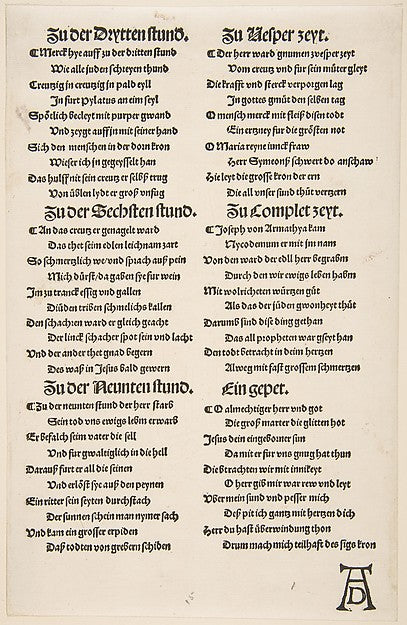 Zu der Drytten stund.
Merck hye auff zu der dritten stund
Wie alle juden schreyen thund
Creutzig in creutzig in pald eyll
In furt pylatus an eim seyl
Spötlich becleyt mit purper gwand
Vnd zeygt auff jn mit seiner hand
Sich den menschen in der dorn kron
Wie ser ich jn gegeysselt han
Das hulff nit sein creutz er selbß trug
Von üblen lydt er groß vnfug
Zu der Sechsten stund.
An das creutz er genagelt ward
Das thet seim edlen leichnam zart
So schmertzlich we vnd sprach auß pein
Mich dürst da gaben sye fur wein
Im zu tranck essig vnd gallen
Die juden triben schmelichs kallen
Den schachern ward er gleich geacht
Der linck schacher spot sein vnd lacht
Vnd der ander thet gnad begern
Des waß in Jesus bald gewern
Zu der Neunten stund.
Zu der neunten stund der herr starb
Sein tod vns ewigs lebm erwarb
Er befalch seim vater die sell
Vnd fur gwaltiglich in die hell
Darauß furt er all die seinen
Vnd erlöst sye auß den peynen
Ein ritter sein seyten durchstach
Der sunnen schein man nymer sach
Vnd kam ein grosser erpiden
Daß todten von grebern schiden
Zu Vesper zeyt.
Der herr ward gnumen zvesper zeyt
Vom creutz vnd fur sein muter gleyt
Die krafft vnd sterck verporgen lag
In gottes gmüt den selben tag
O mensch merck mit fleiß disen todt
Ein ertzney fur die grösten not
O Maria reyne junckfraw
Herr Symeons schwert do anschaw
Hie leyt die grosse kron der ern
Die all vnser sund thüt vertzern
Zu Complet zeyt.
Joseph von Armathya kam
Nycodemum er mit jm nam
Von den ward der edll herr begrabm
Durch den wir ewigs leben habm
Mit wolrichten würtzen güt
Als das der juden gwonheyt thüt
Darumb sind dise ding gethan
Das all propheten war gseyt han
Den todt betracht in deim hertzen
Alweg mit fast grossem schmertzen
Ein gepet.
O almechtiger herr vnd got
Die groß marter die glitten hot
Jesus dein eingeborner sun
Da mit er fur vns gnug hat thun
Die btrachten wir mit innikeyt
O herr gib mir war rew vnd leyt
Vber mein sund vnd pesser mich
Deß pit ich gantz mit hertzen dich
Herr du hast überwindung thon
Drum mach mich teilhaft des sigs kron
AD